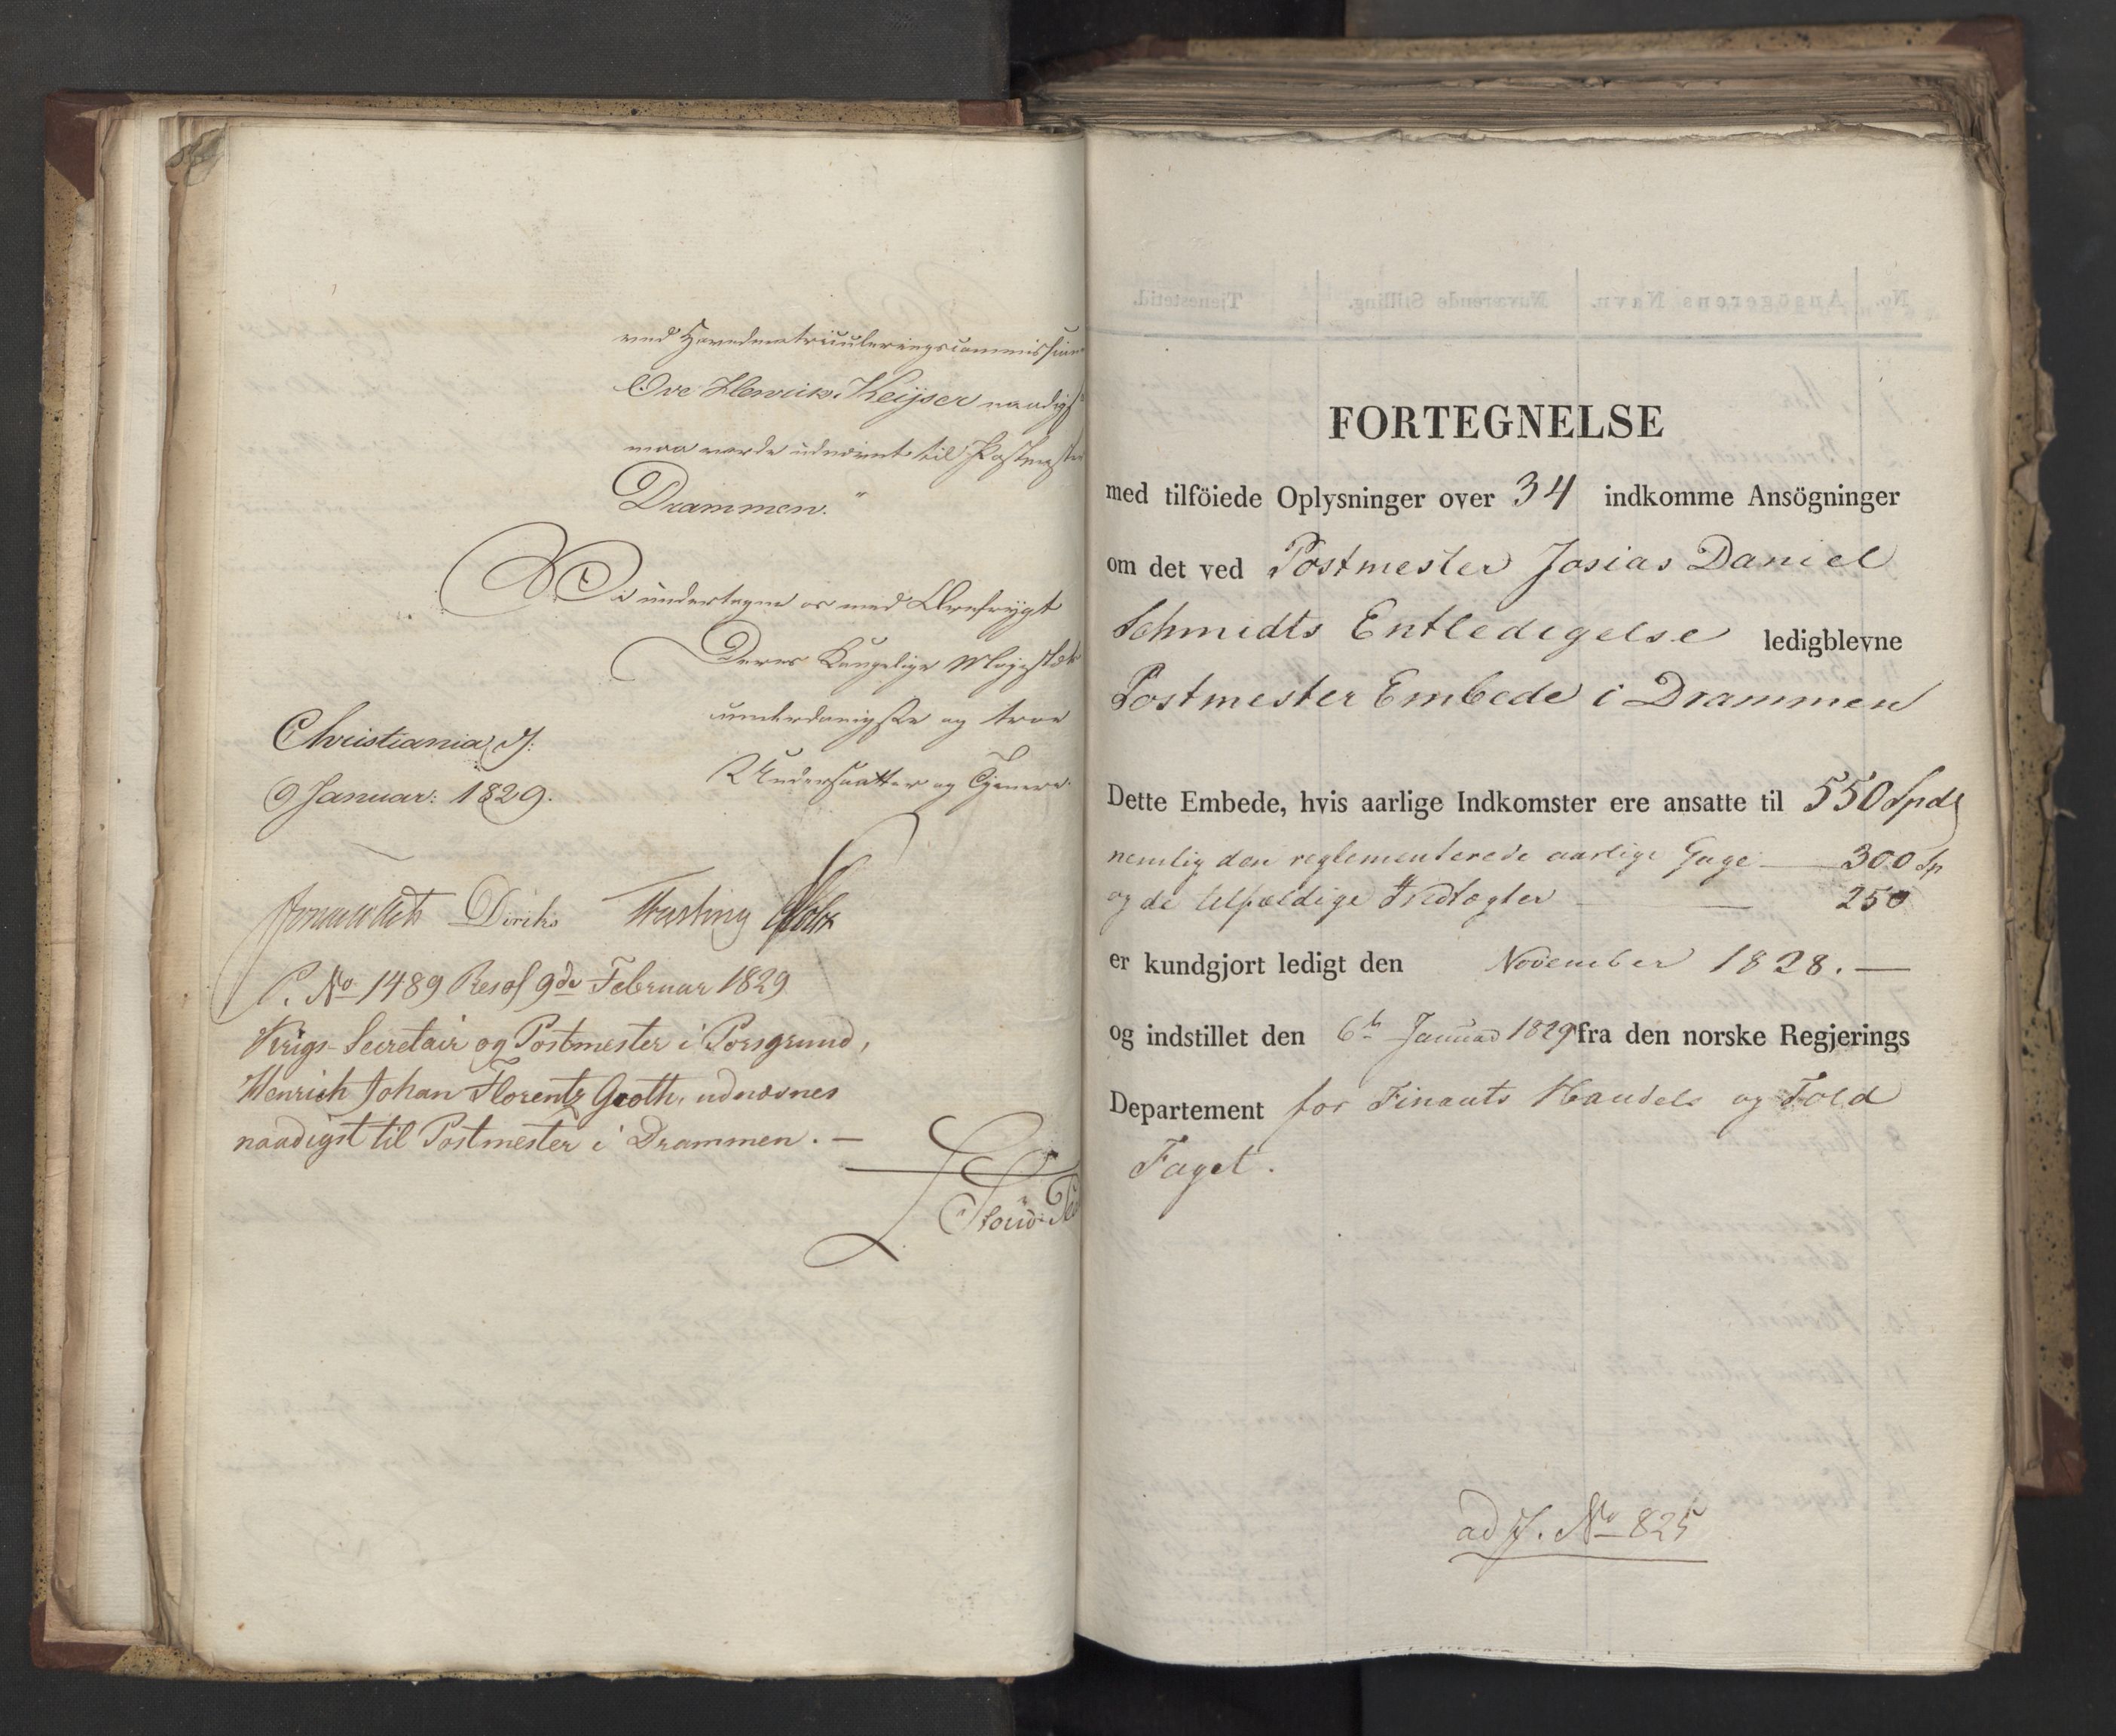 ved Hovedmatriculeringscommissionen
Ove Henrik Keyser naadigst
maa vorde udnævnt til Postmester i
Drammen."
Vi undertegne os med Ærefrygt
Deres Kongelige Majestæts
underdanigste og troe
Undersaatter og Tjenere.
Christiania d:
9 Januar: 1829.
Diriks
P. No 1489 Resol 9de Februar 1829
Krigs-Secretair og Postmester i Porsgrund,
Henrich Johan Florentz Groth, udnævnes
naadigst til Postmester i Drammen. —
FORTEGNELSE
med tilföiede Oplysninger over 34 indkomme Ansögninger
om det ved Postmester Josias Daniel
Schmidts Entledigelse ledigblevne
Postmester Embede i Drammen
Dette Embede, hvis aarlige Indkomster ere ansatte til 550 Spd
nemlig den reglementerede aarlige Gage — 300 Sp
og de tilfældige Indtægter — — 250
er kundgjort ledigt den November 1828. —
og indstillet den 6te Januar 1829 fra den norske Regjerings
Departement for Finants Handels og Told
Faget.
ad J. No 825